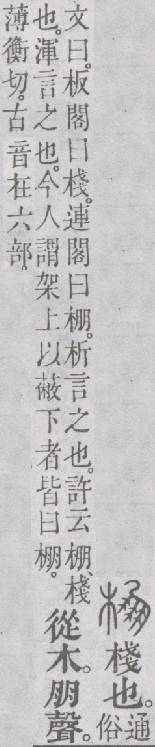 棚棧也。通
俗
文曰。板閣曰棧。連閣曰棚。析言之也。許云棚、棧
也。渾言之也。今人謂架上以蔽下者皆曰棚。
從木。朋聲。
薄衡切。古音在六部。